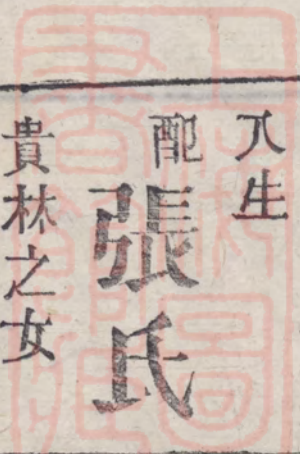 人生
配張氏
貴林之女